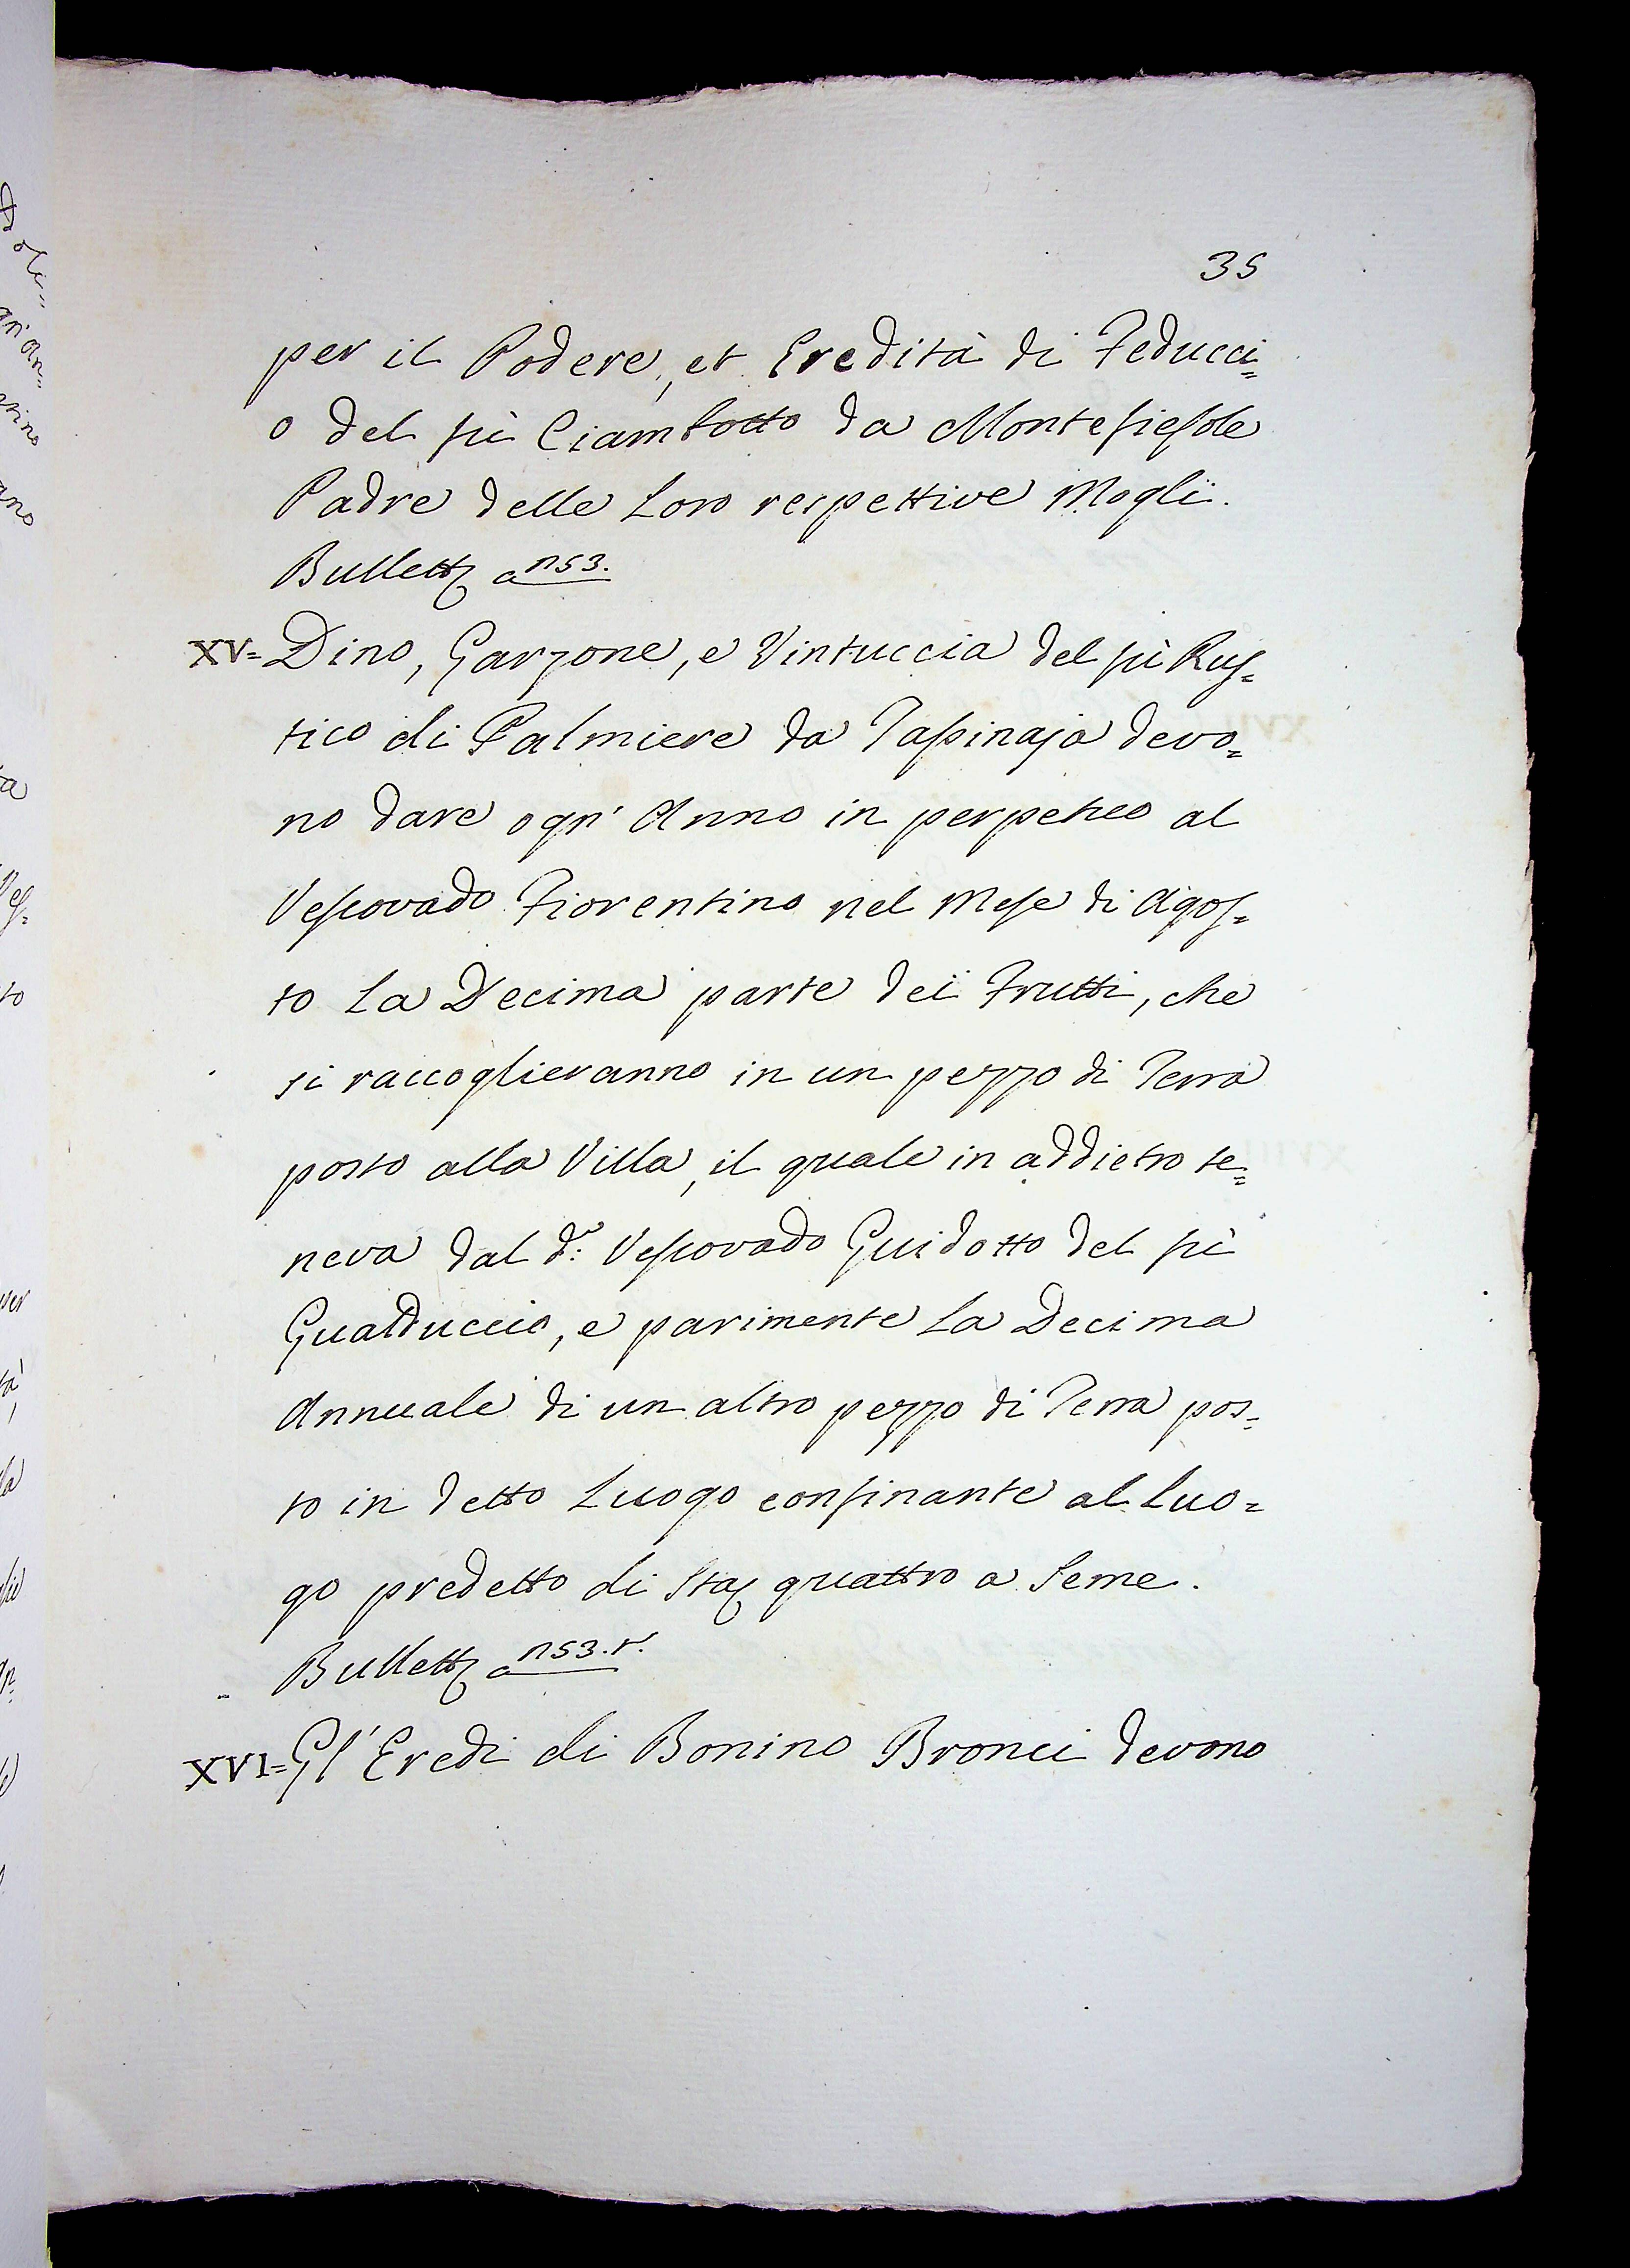 35
per il Podere, et Eredità di Feducci=
o del fù Ciambotto da Montefiesole
Padre delle Loro respettive Mogli.
Bullett a n53.
XV= Dino, Garzone, e Vintuccia del fù Rus=
tico di Palmiere da Tassinaja devo=
no dare ogn' Anno in perpetuo al
Vescovado Fiorentino nel Mese di Agos=
to La Decima parte dei Frutti, che
si raccoglieranno in un pezzo di Terra
posto alla Villa, il quale in addietro te=
neva dal d.º Vescovado Guidotto del fù
Gualduccio, e parimente La Decima
Annuale di un altro pezzo di Terra pos=
to in detto Luogo confinante al Luo=
go predetto di Sta quattro a Seme.
Bullett a n53.t.
XVI= Gl' Eredi di Bonino Bronci devono